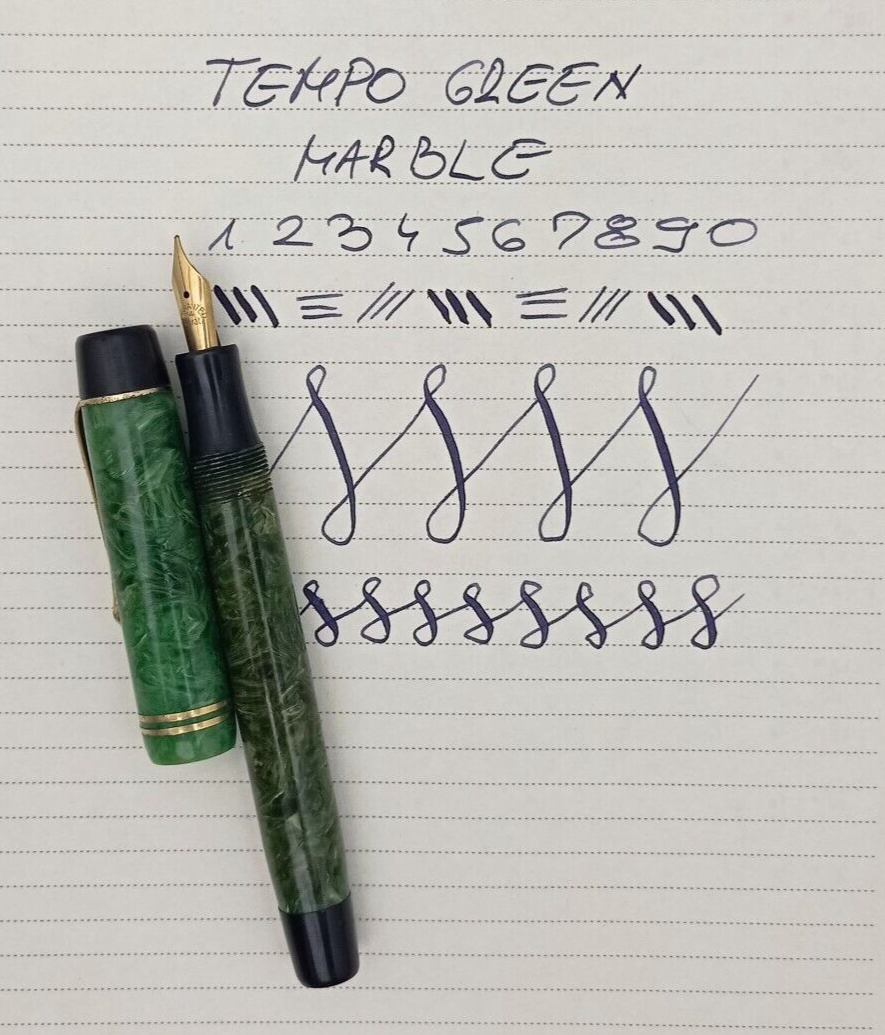 TEMPO GREEN
MARBLE
1 2 3 4 5 6 7 8 9 0